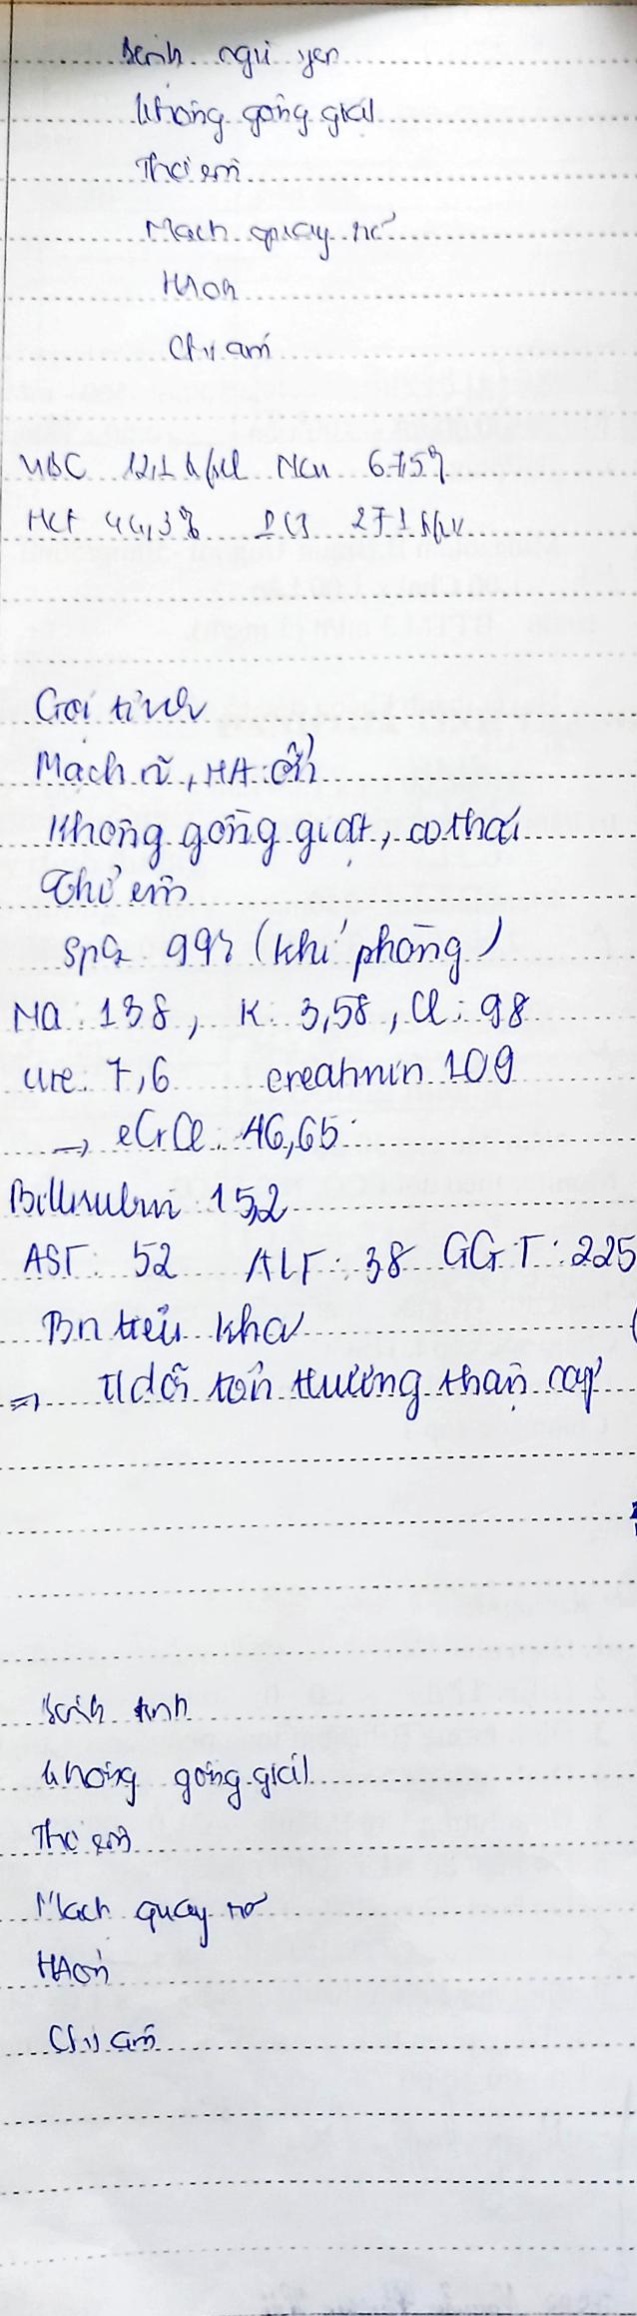 Bệnh ngủ yên
Không gồng giật
Thở êm
Mạch quay rõ
HA ổn
Chi ấm
WBC 12,1 k/µl Neu 67,5%
Hct 44,3% PLT 271 k/µl
Gọi tỉnh
Mạch rõ, HA: ổn
Không gồng giật, co thắt
Thở êm
SpO2 99% (khí phòng)
Na: 138, K: 3,58, Cl: 98
Ure: 7,6 creatinin 109
→ eCrCl: 46,65
Billirubin: 15,2
AST: 52 ALT: 38 GGT: 225
Bn tiểu khá
=> Tdõi tổn thương thận cấp
Bệnh tỉnh
Không gồng giật
Thở êm
Mạch quay rõ
HA ổn
Chi ấm